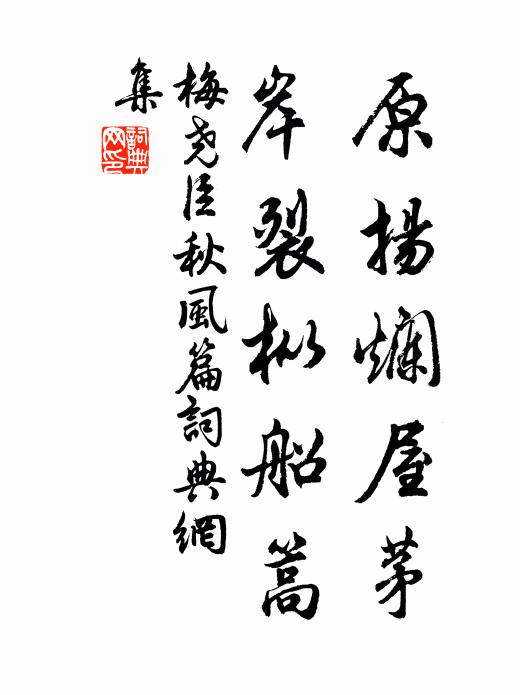 原揚爛屋茅
岸裂枞船篙
梅尧臣秋風篇詞典網
集
詞典网印